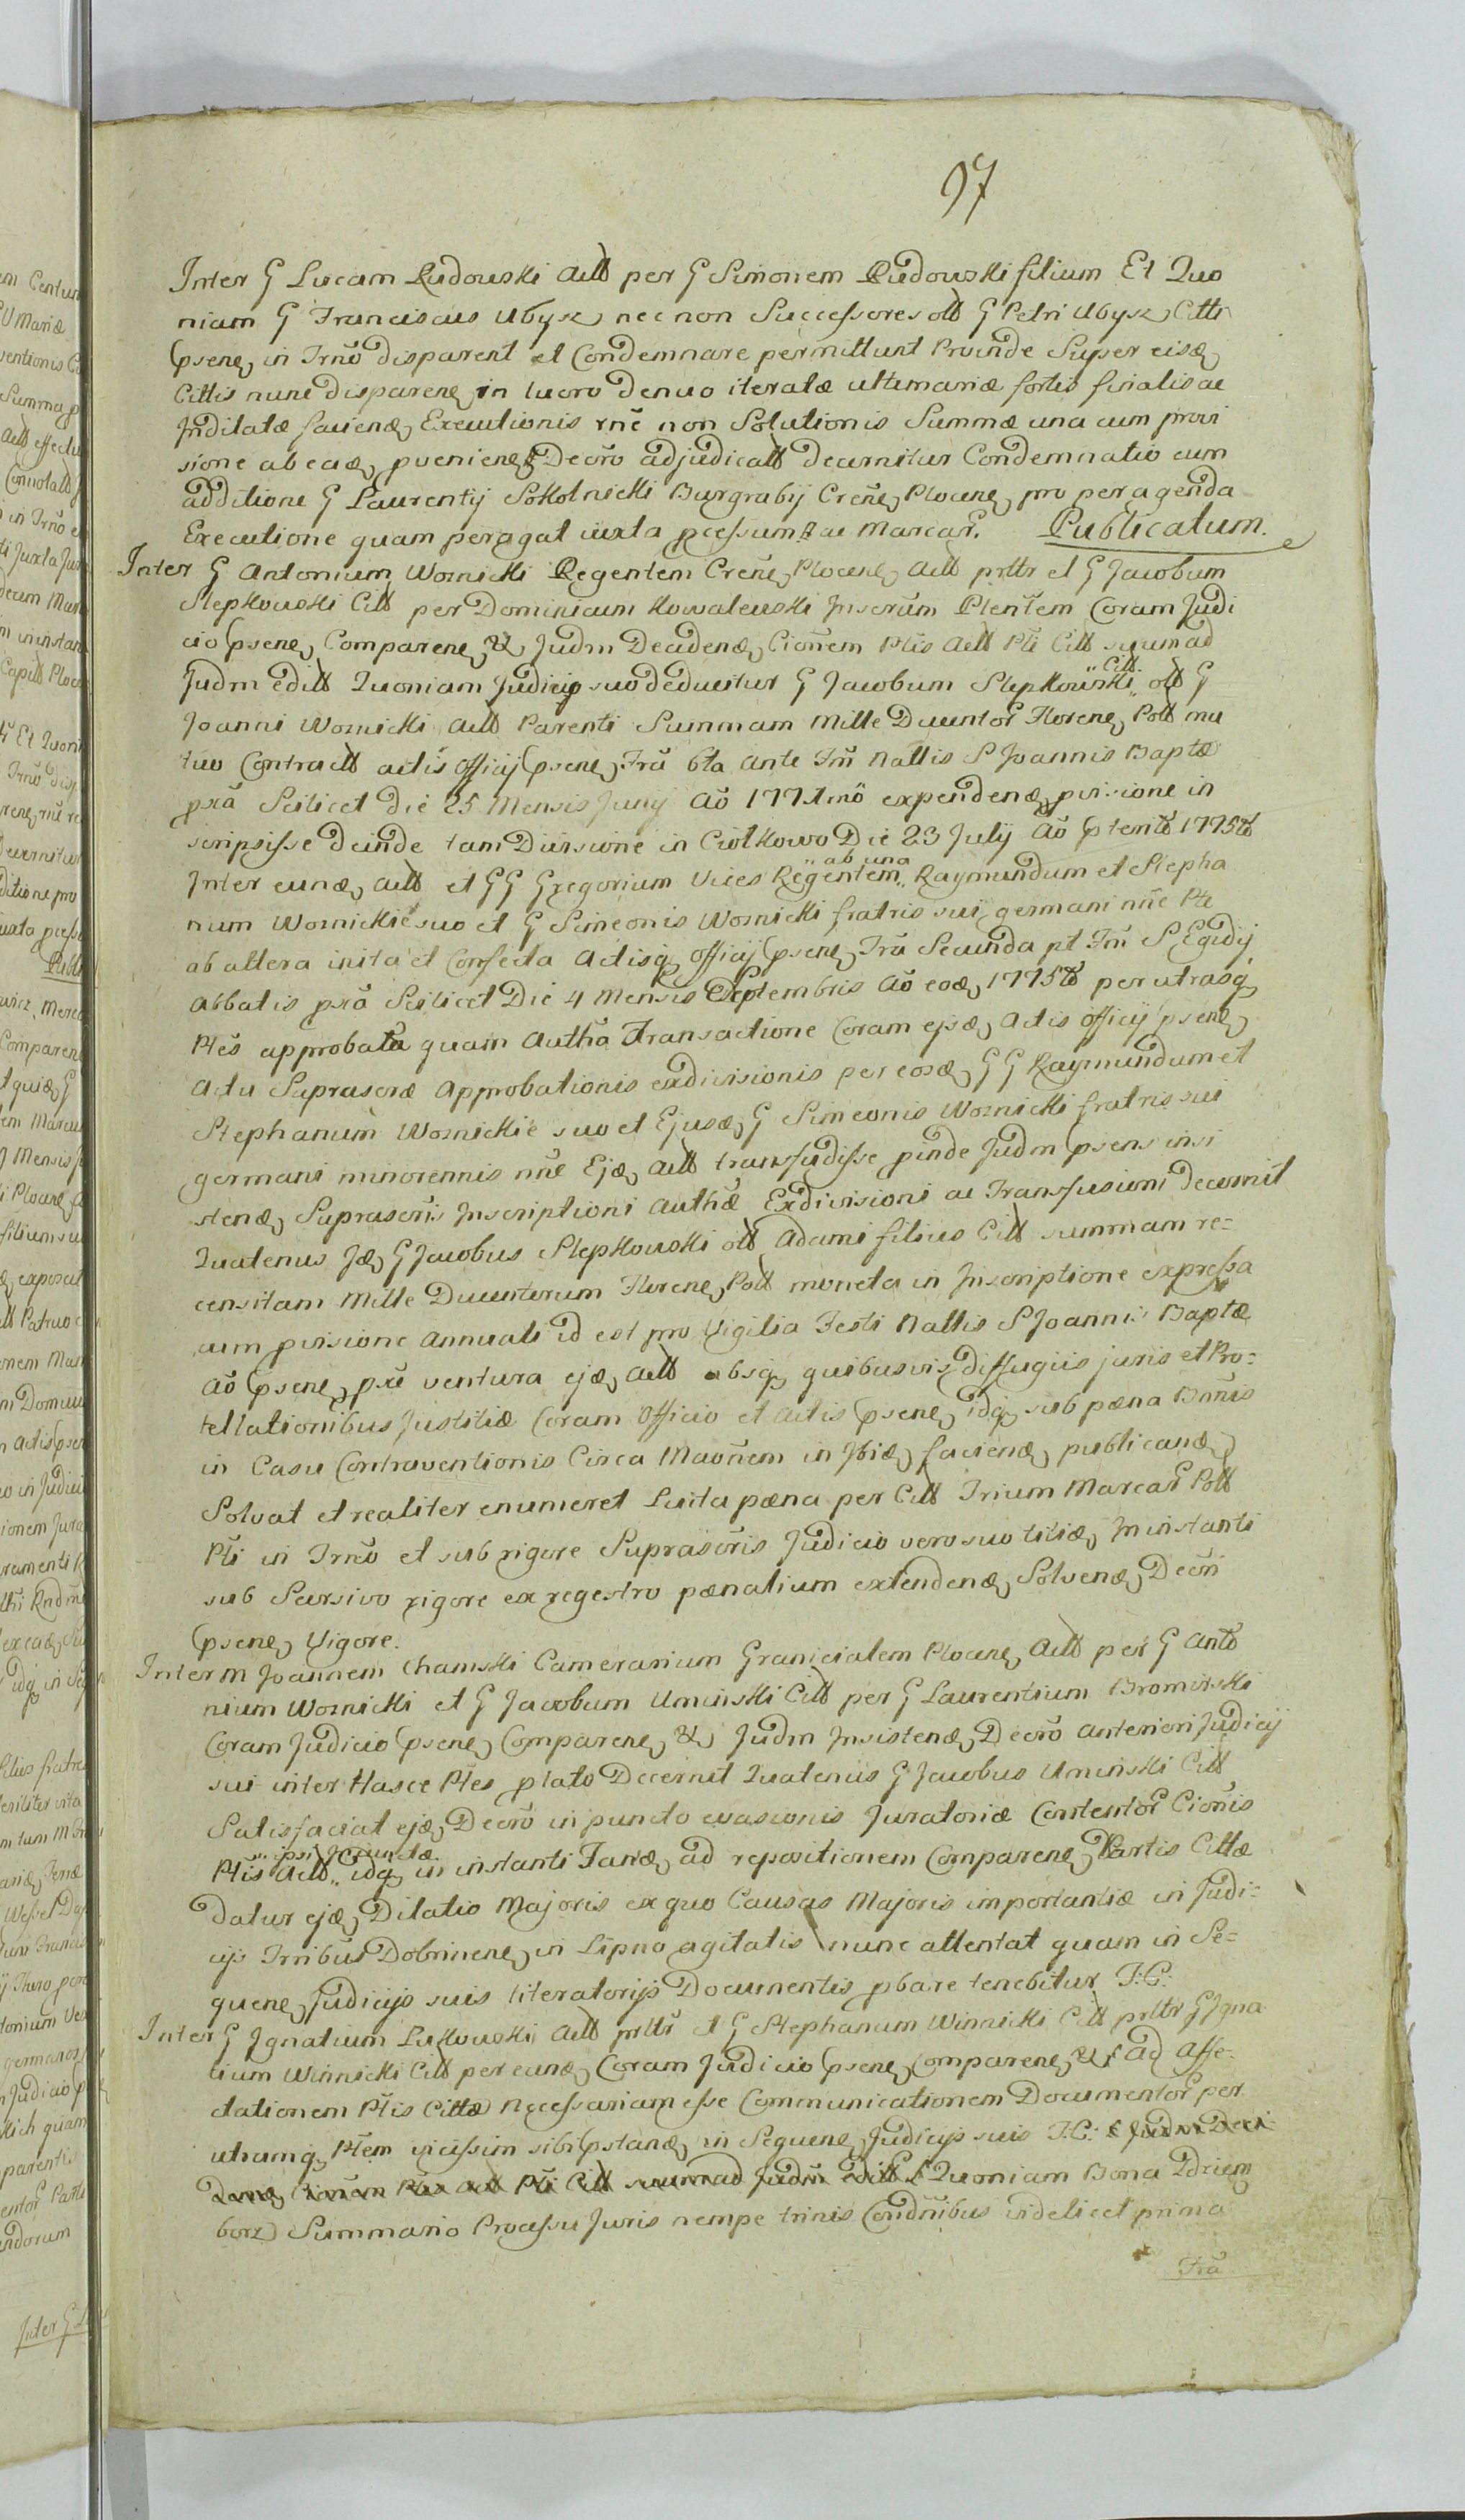 97
Inter G Lucam Rudowski Actt per G Simonem Rudowski filium Et Quo
niam G Franciscus Ubysz nec non Successores olt G Petri Ubysz Citti
psene in Trno disparent et Condemnare permittunt Proinde Super eisd
Cittis nunc disparene in lucro denuo iteratæ ultimariæ sortis finalis ac
Inditatæ faciend Executionis rne non Solutionis Summæ una cum provi
sione ab ead pveniene Decro adjudicatt decernitur Condemnatio cum
additione G Laurentij Sokolnicki Burgrabij Crene Plocene pro peragenda
Executione quam peragat iuxta pcessum 3 ac Marcar. Publicatum.
Inter G Antonium Woznicki Regentem Crene Plocene Actt prltr et G Jacobum
Slepkowski Citt per Dominicum Kowalewski Inscrum Plentem Coram Judi
cio psene Comparene & Judm Decidend Cionem Ptis Actt Pti Citt suum ad
Judm editt Quoniam Judicio suo deducitur G Jacobum Slepkowski Citt olt G
Joanni Woznicki Actt Parenti Summam Mille Ducentor Florene Poll mu
tuo Contractt actis Officij psene Fra 6ta Ante Fm Nattis S Joannis Baptæ
pxa Scilicet Die 25 Mensis Junij Ao 1771mo expendend pvisione in
scripsisse deinde tam Divisione in Ciolkowo Die 23 July Ao pterito 1775to
Inter eund Actt et GG Gregorium Vices Regentem ab una Raymundum et Stepha
num Woznickie suo et G Simeonis Woznicki fratris sui germani nne Pte
ab altera inita et Confecta Actisq Officij psene Fra Secunda pt Fm S Egidij
Abbatis pxa Scilicet Die 4 Mensis Septembris Ao eod 1775to per utrasq
Ptes approbata quam Autha Transactione Coram ejsd Actis Officij psene
Actu Suprascræ Approbationis exdivisionis per eosd GG Raymundum et
Stephanum Woznickie suo et Ejusd G Simeonis Woznicki fratris sui
germani minorennis nne Ejd Actt transfudisse pinde Judm psens insi
stend Suprascris Inscriptioni Authæ Exdivisioni ac Transfusioni decernit
Quatenus Jd G Jacobus Slepkowski olt Adami filius Citt summam re=
censitam Mille Ducentorum Florene Poll moneta in Inscriptione expressa
cum pvisione Annuali id est pro Vigilia Festi Nattis S Joannis Baptæ
Ao psene pxe ventura ejd Actt absq quibusvis diffugiis juris et Pro=
tellationibus Justitiæ Coram Officio et Actis psene idq sub pæna Bnnis
in Casu Contraventionis Circa Maonem in Ibid faciend publicand
Solvat et realiter enumeret Luita pæna per Citt Trium Marcar Poll
Pti in Trno et sub rigore Suprascris Judicio vero suo titid In instanti
sub Scursivo rigore ex regestro pænalium extendend Solvend Decri
psene Vigore.
Inter M Joannem Chamski Camerarium Granicialem Plocene Actt per G Anto
nium Woznicki et G Jacobum Uminski Citt per G Laurentium Bromirski
Coram Judicio psene Comparene & Judm Insistend Decro anteriori Judicij
sui inter Hasce Ptes plato Decernit Quatenus G Jacobus Uminski Citt
Satisfaciat ejd Decro in puncto evasionis Juratoriæ Contentor Cionis
Ptis Actt ipsi Injunctæ idq in instanti Tand ad repositionem Comparene Partis Cittæ
datur ejd Dilatio Majoris ex quo Causas Majoris importantiæ in Judi=
cijs Trnibus Dobrinene in Lipno agitatis nunc attentat quam in Se=
quene Judicijs suis literatorijs Documentis pbare tenebitur T:C:
Inter G Ignatium Lukowski Actt prltr et G Stephanum Winnicki Citt prltr G Igna
tium Winnicki Citt per eund Coram Judicio psene Comparene & Ad Affe=
ctationem Ptis Cittæ Necessariam esse Communicationem Documentor per
utramq Ptem vicissim sibi pstand in Sequene Judicijs suis T:C: & Judm Deci=
dend Cionem Ptis Actt Pti Citt suum ad Judm editt Quoniam Bona Zdziem
borz Summario Processu Juris nempe trinis Condnibus videlicet prima
Fra